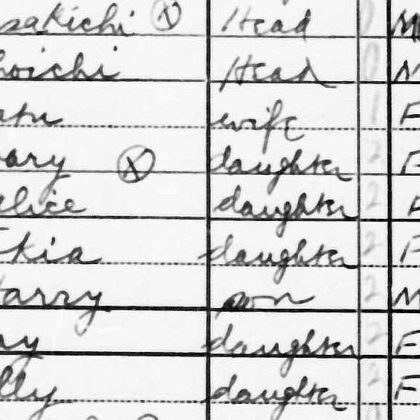 sakichi ⓧ Head 0 M
oichi Head 0 M
atu wife 1 F
ary ⓧ daughter 2 F
lice daughter 2 F
kia daughter 2 F
arry son 2 M
ay daughter 2 F
lly daughter 2 F